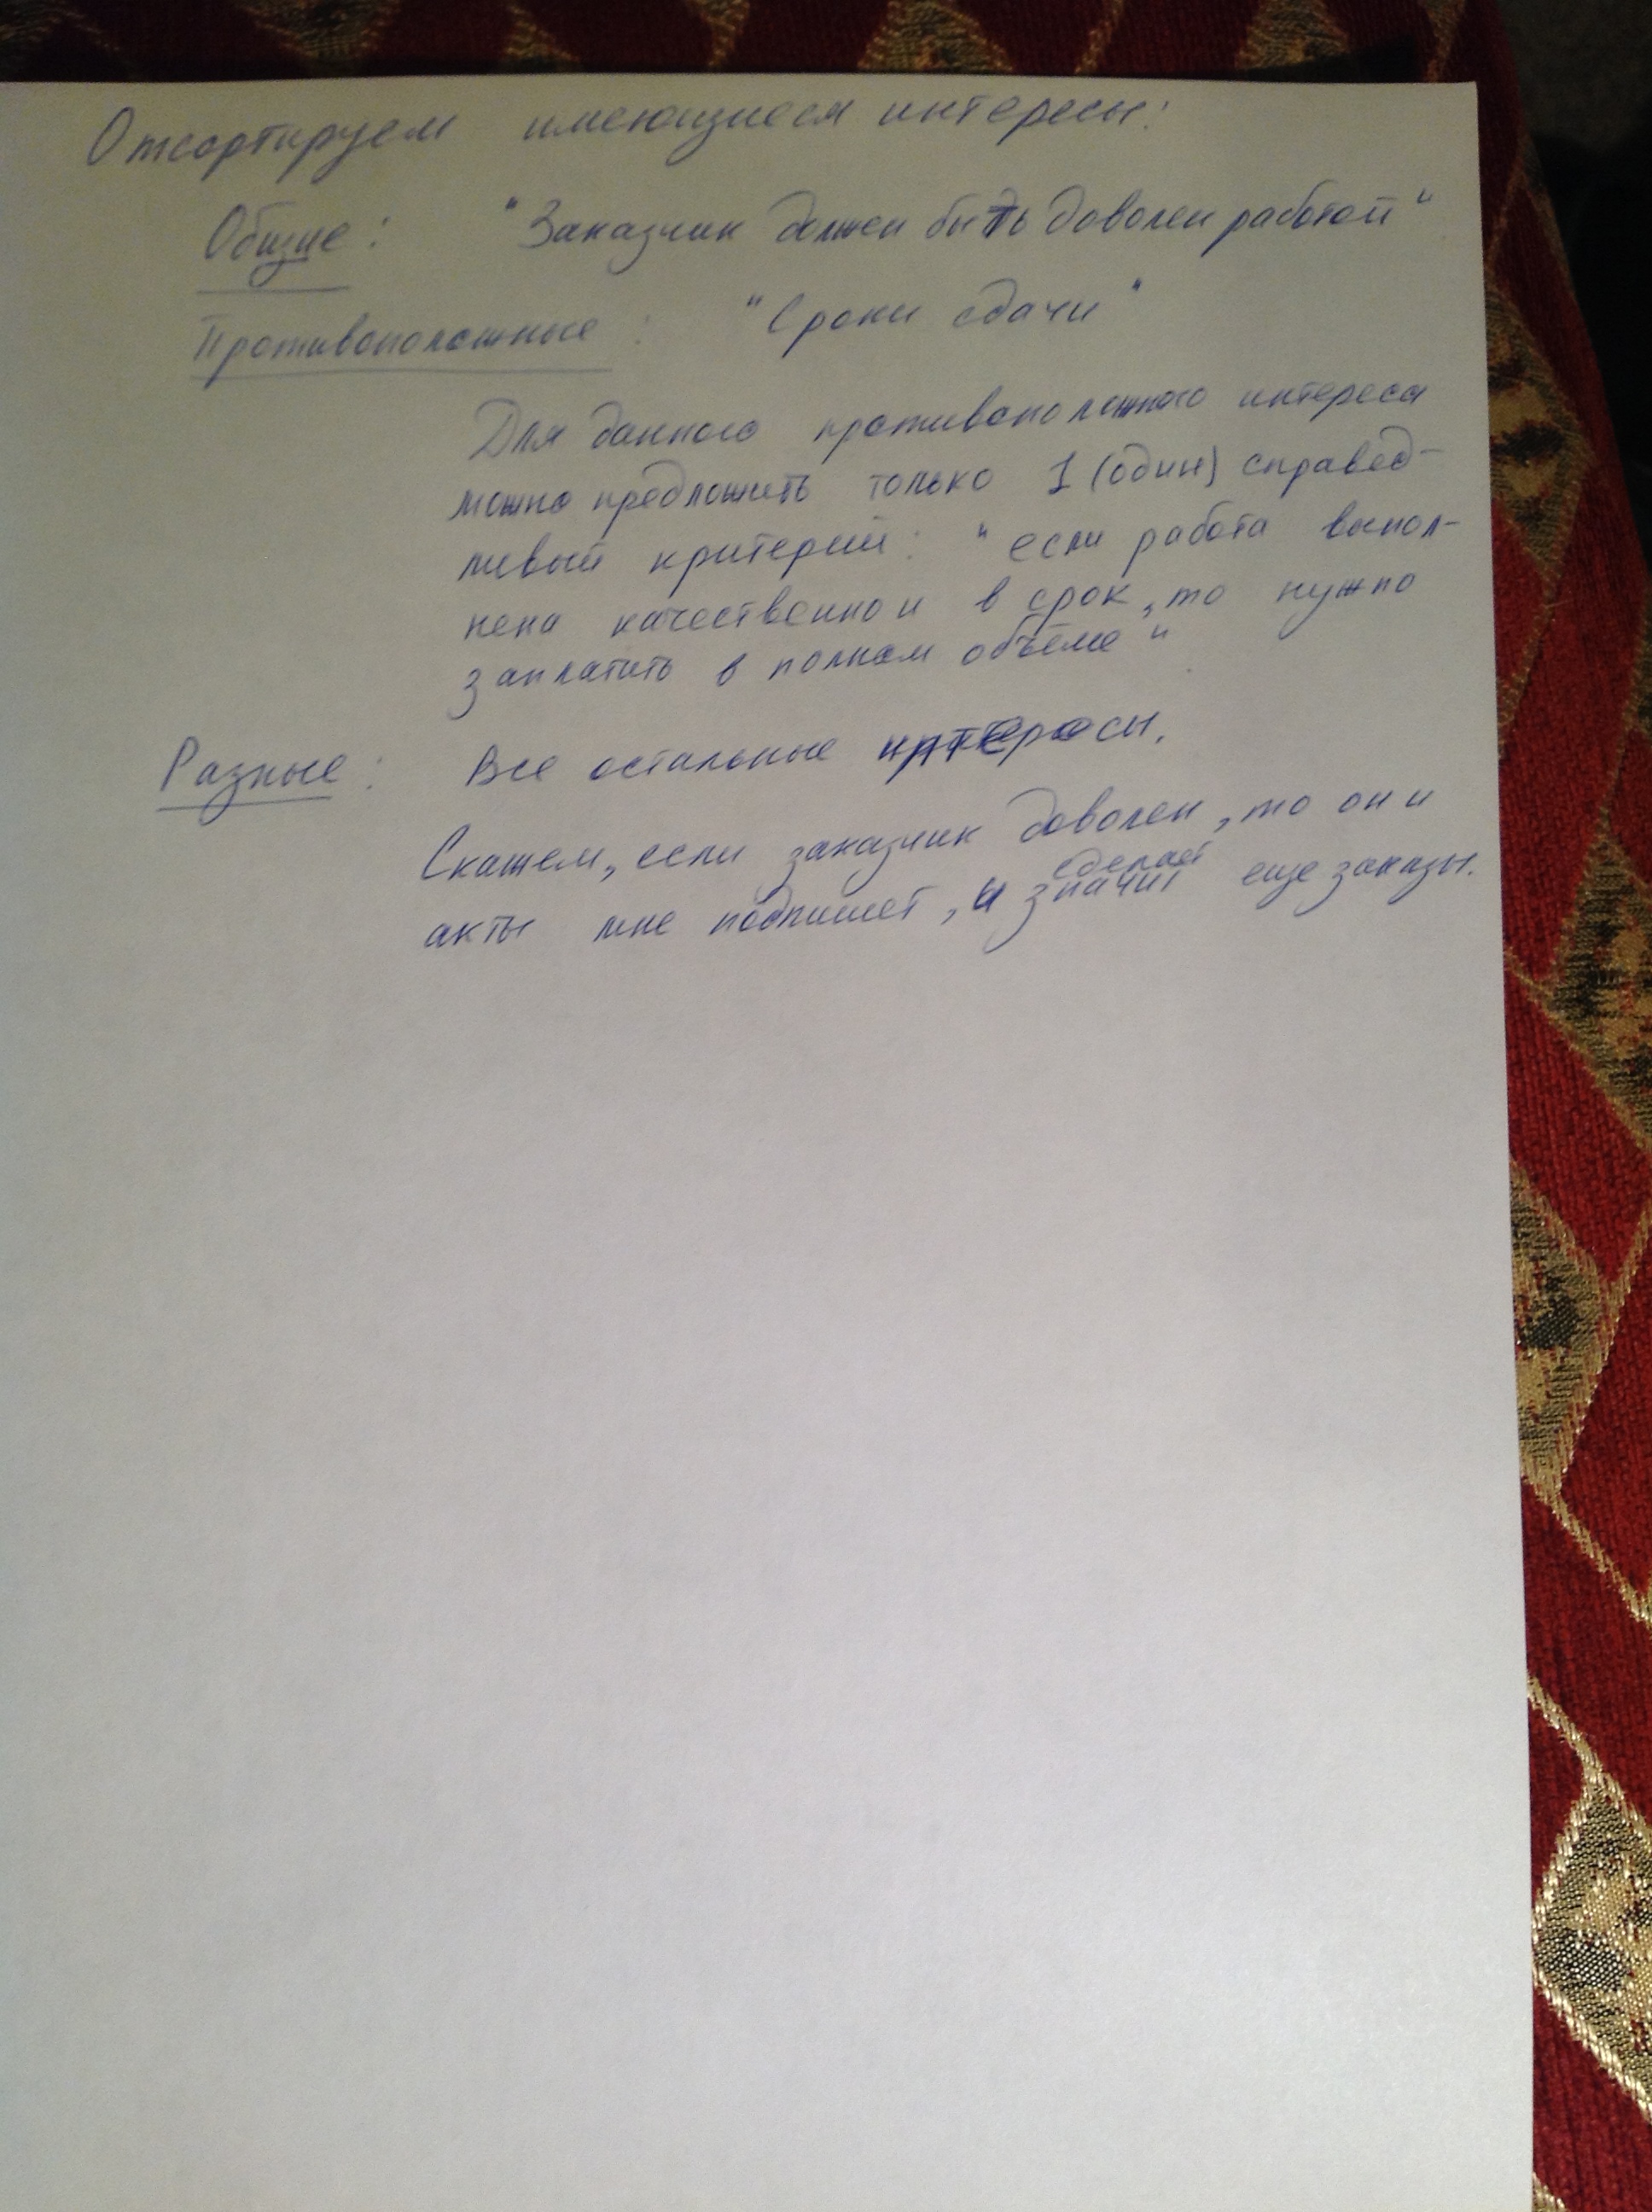 Отсортируем имеющиеся интересы:
Общие: "Заказчик должен быть доволен работой"
Противоположные: "Сроки сдачи"
Для данного противоположного интереса
можно предложить только 1 (один) справед-
ливый критерий: "если работа выпол-
нена качественно и в срок, то нужно
заплатить в полном объёме"
Разные: Все остальные интересы.
Скажем, если заказчик доволен, то он и
сделает
акты мне подпишет, и значит еще заказы.